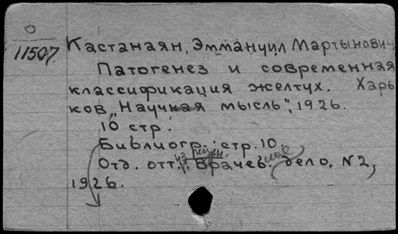 О
11507
Кастанаян, Эммануил Мартынович
Патогенез и современная
классификация желтух. Харь
ков, „Научная мысль", 1926.
10 стр.
Библиогр.: стр. 10.
Отд. отт. из Врачеб. дело, N2,
1926.